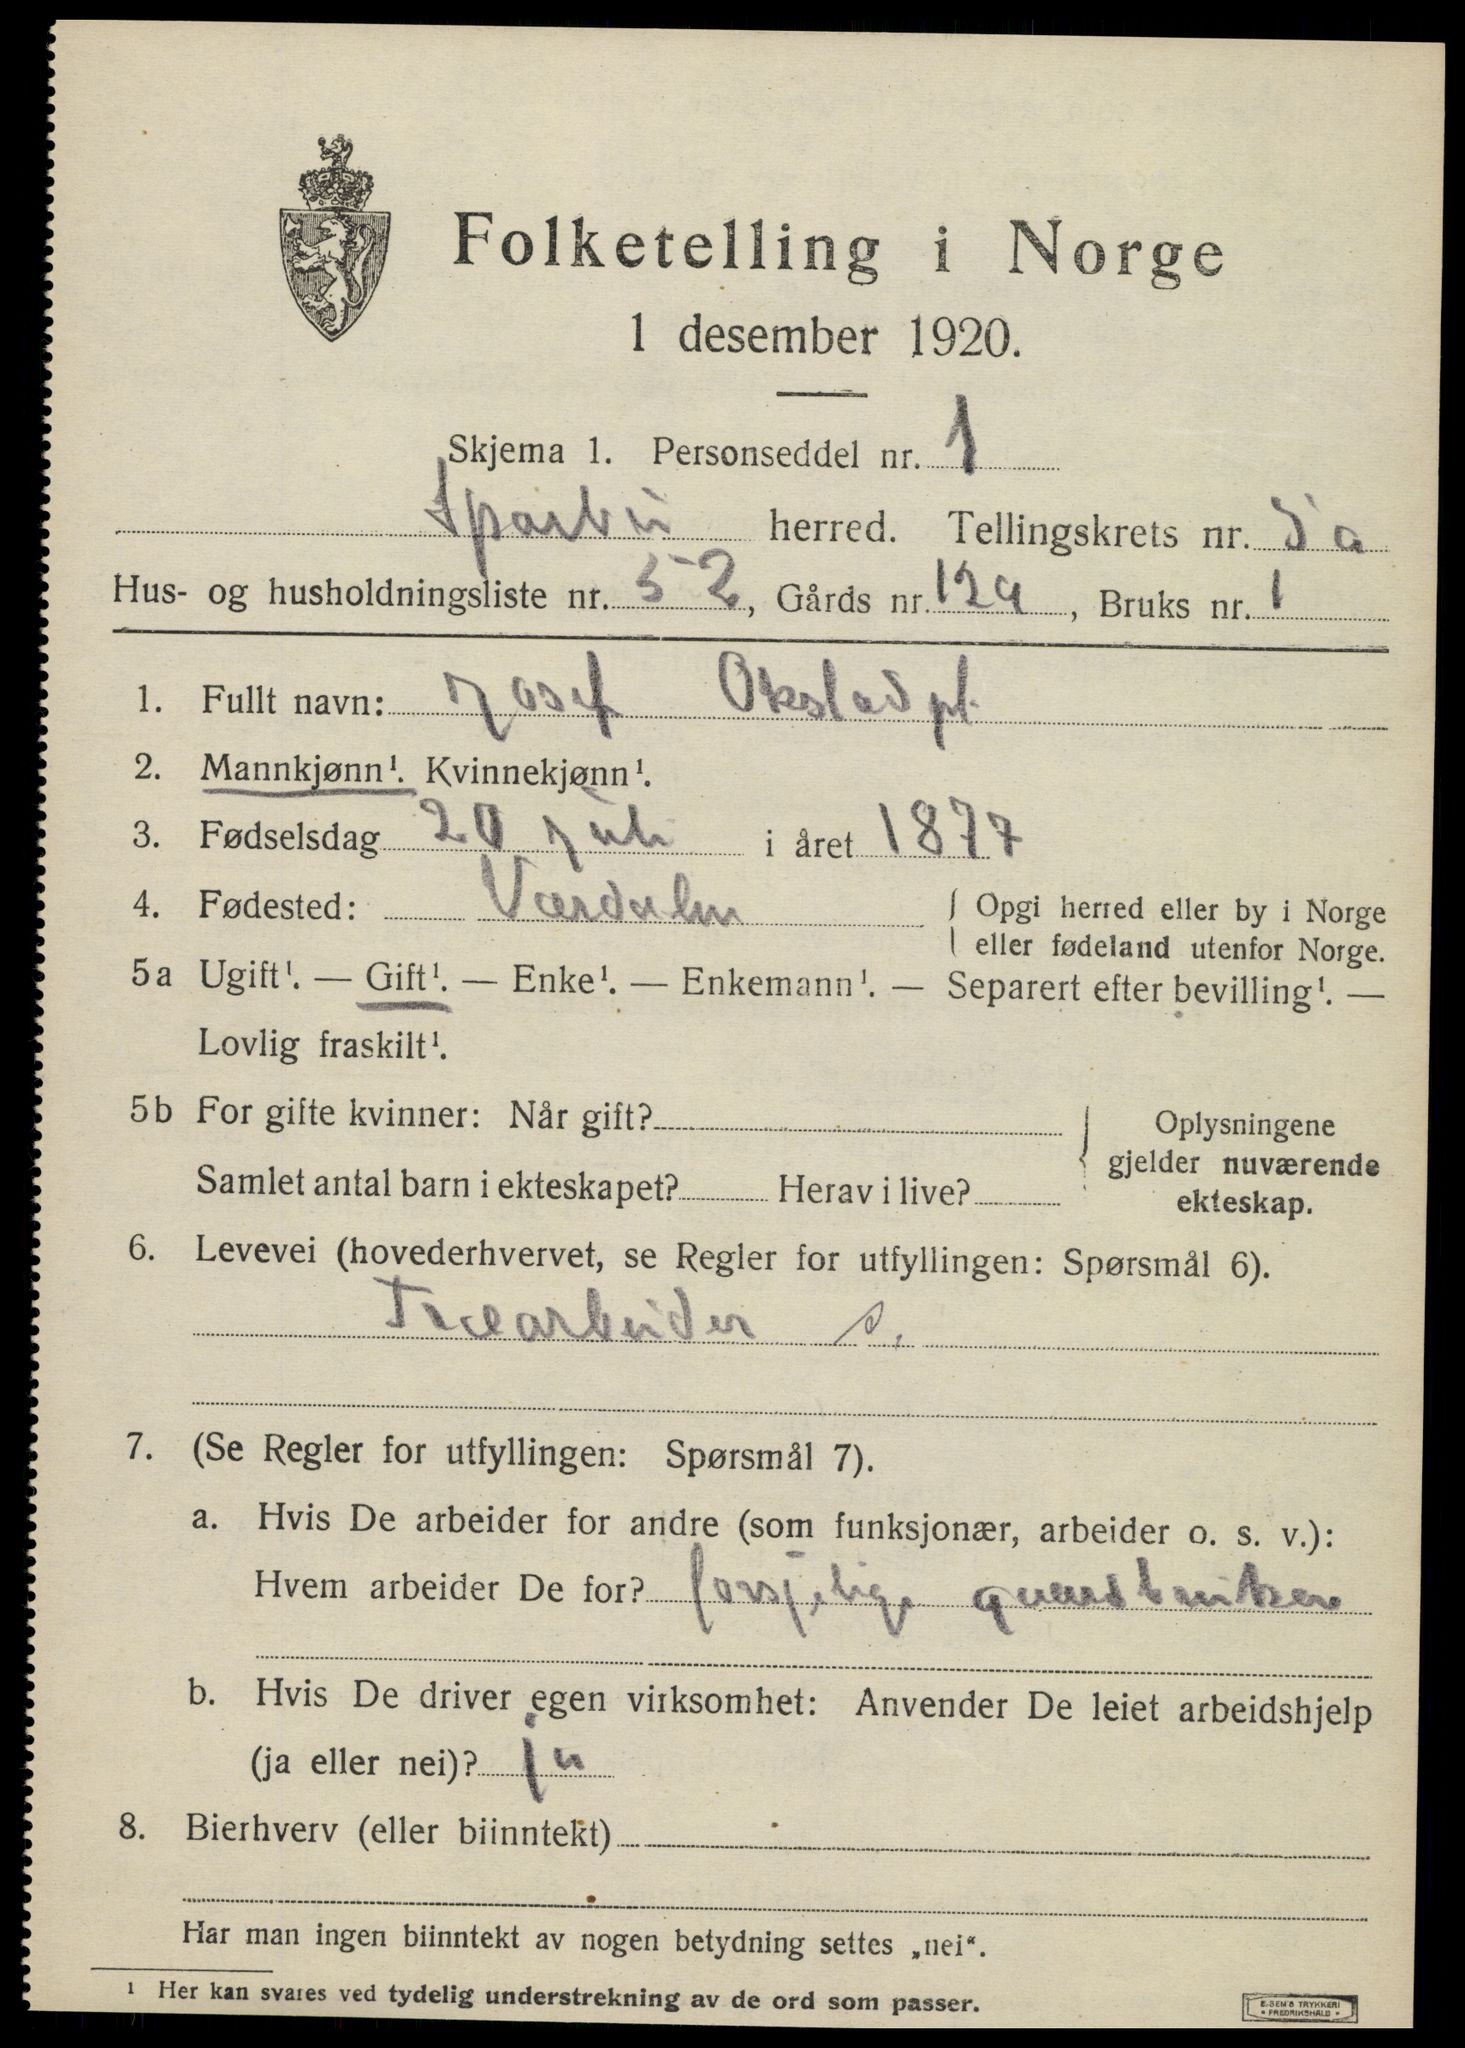 Folketelling i Norge
1 desember 1920.
Skjema 1. Personseddel nr. 1
Sparbu herred. Tellingskrets nr. 5a
Hus- og husholdningsliste nr. 52, Gårds nr. 129, Bruks nr. 1
1. Fullt navn: Josef Okstadpl.
2. Mannkjønn¹. Kvinnekjønn¹.
3. Fødselsdag 20 juli i året 1877
4. Fødested: Værdalen { Opgi herred eller by i Norge
eller fødeland utenfor Norge.
5a Ugift¹. — Gift¹. — Enke¹. — Enkemann¹. — Separert efter bevilling¹. —
Lovlig fraskilt¹.
5b For gifte kvinner: Når gift?
Samlet antal barn i ekteskapet? Herav i live?
{ Oplysningene
gjelder nuværende
ekteskap.
6. Levevei (hovederhvervet, se Regler for utfyllingen: Spørsmål 6).
Træarbeider s.
7. (Se Regler for utfyllingen: Spørsmål 7).
a. Hvis De arbeider for andre (som funksjonær, arbeider o. s. v.):
Hvem arbeider De for? forsjelige
b. Hvis De driver egen virksomhet: Anvender De leiet arbeidshjelp
(ja eller nei)? ja
8. Bierhverv (eller biinntekt)
Har man ingen biinntekt av nogen betydning settes „nei“.
¹ Her kan svares ved tydelig understrekning av de ord som passer.
E. SEM'S TRYKKERI
• FREDRIKSHALD •